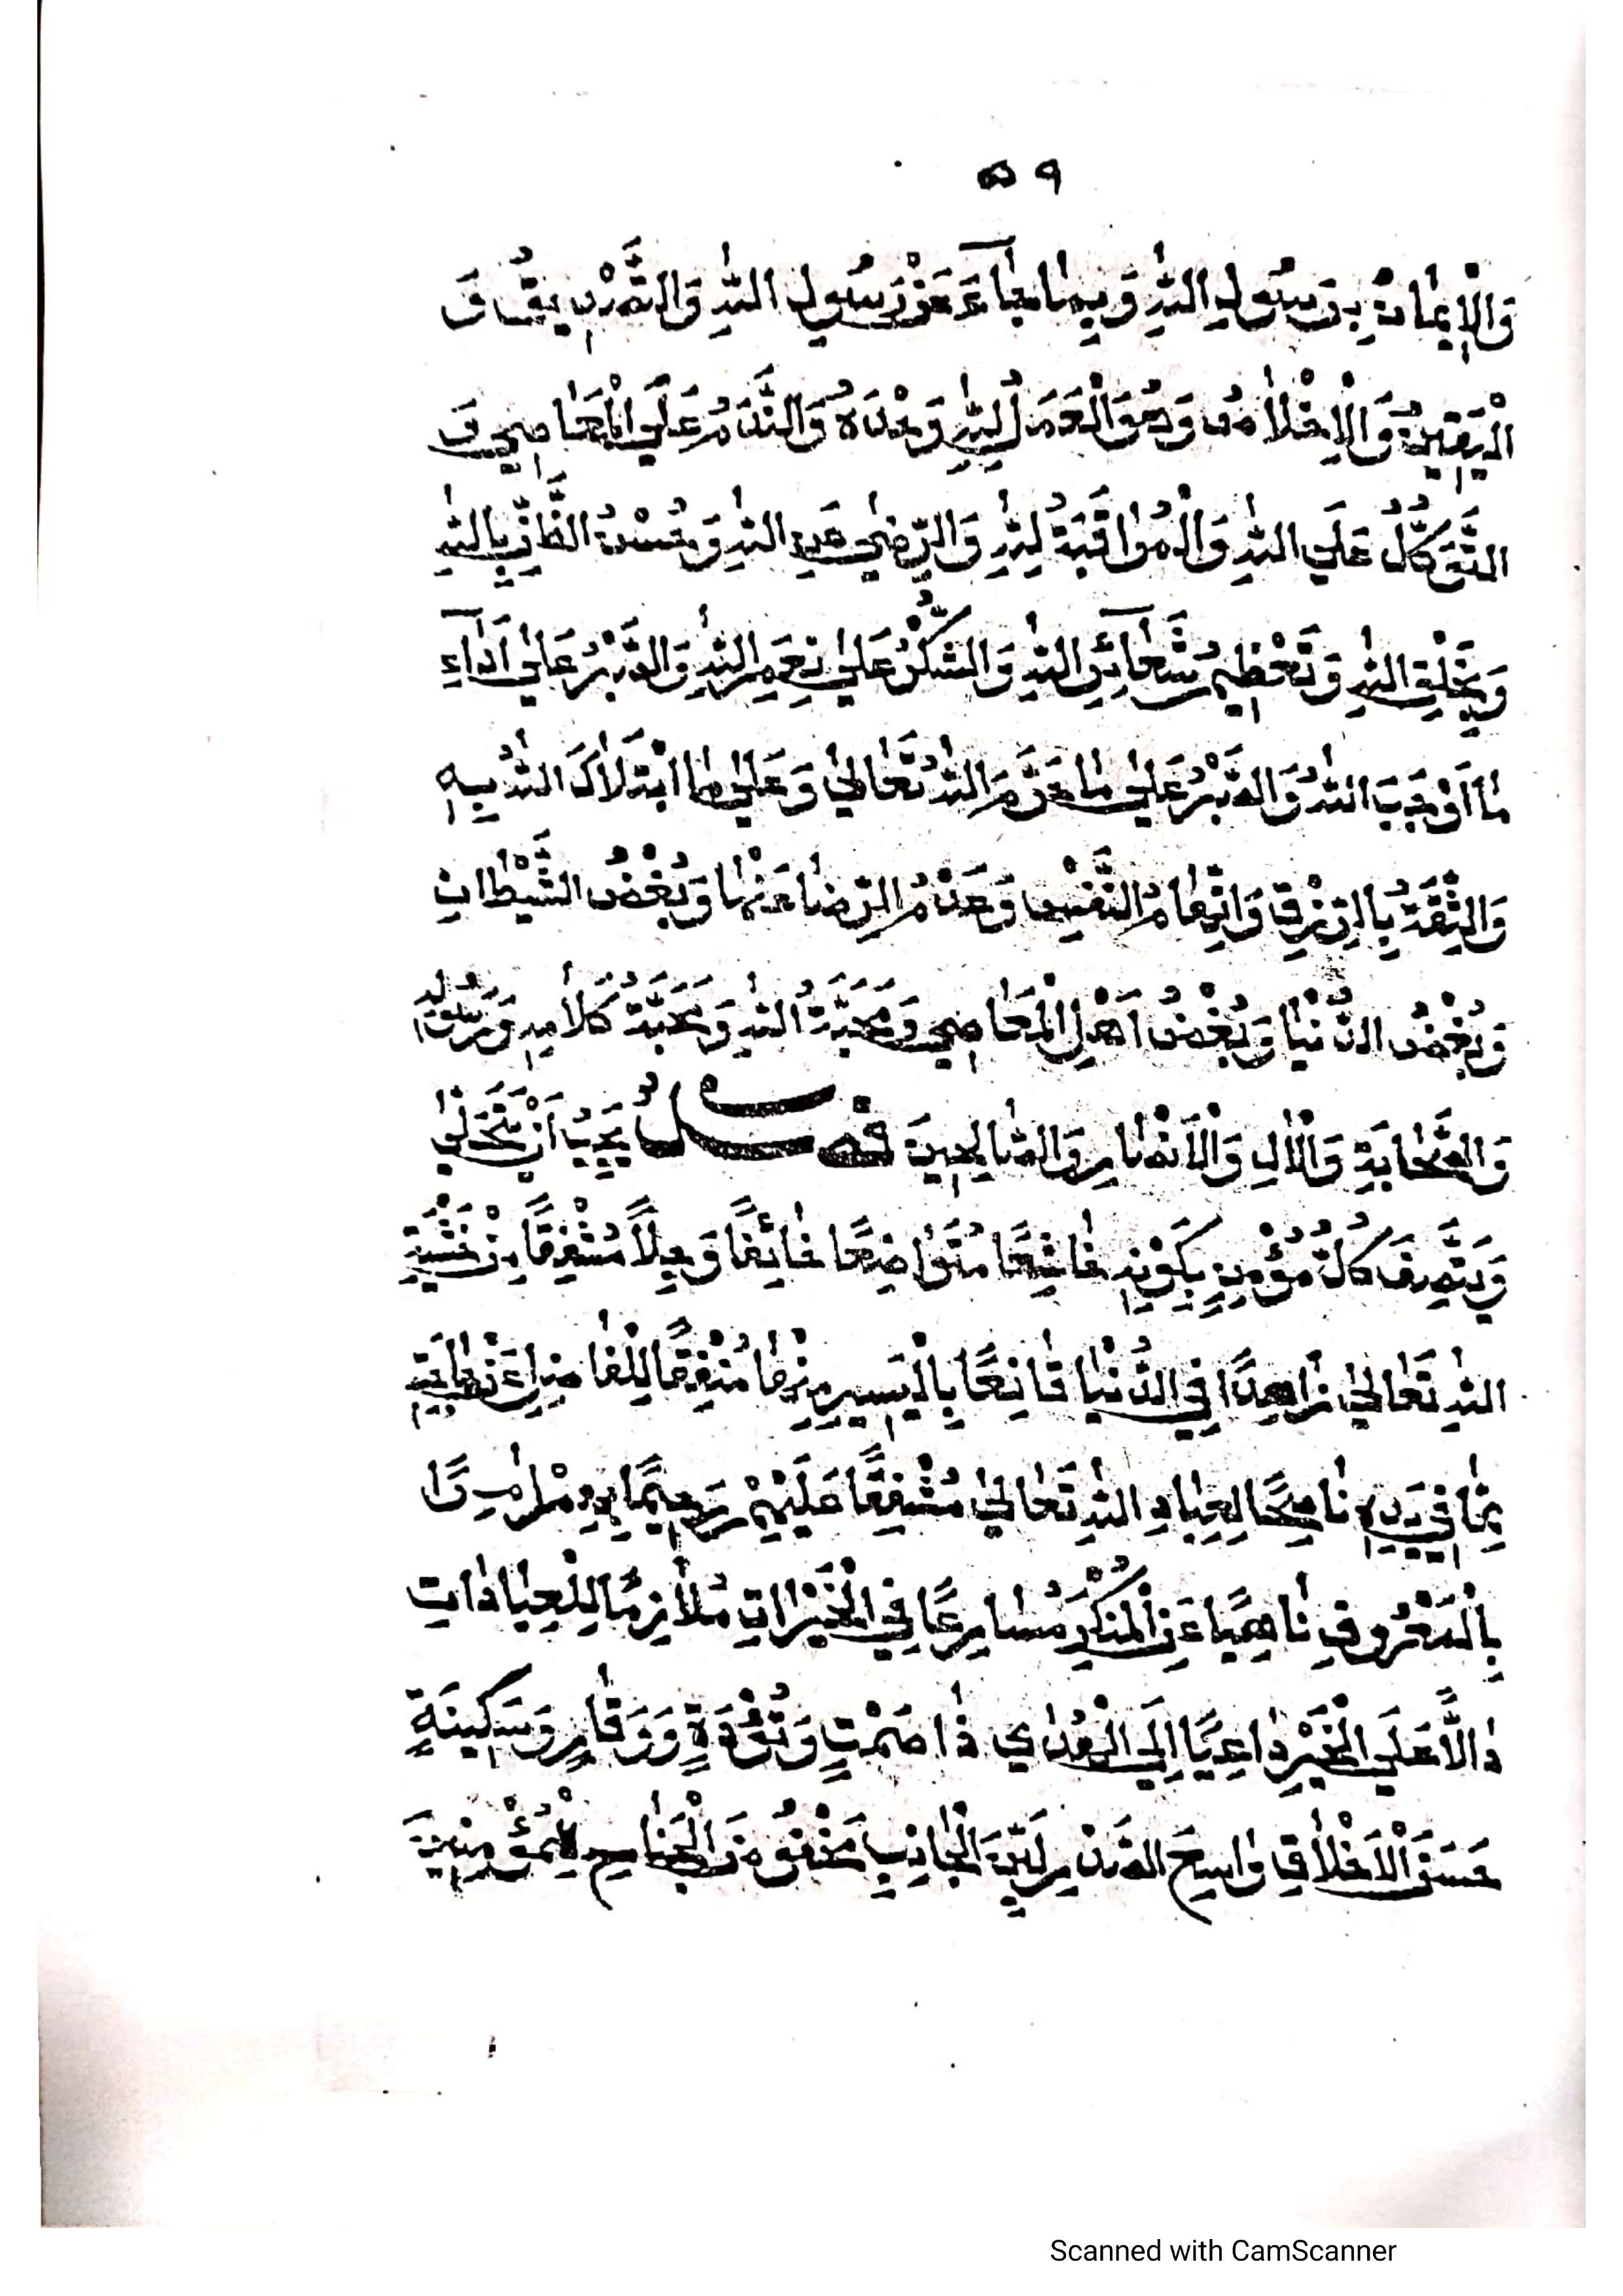 ٥٩
وَالْإِيمَانُ بِرَسُولِ اللهِ وَبِمَا جَاءَ عَنْ رَسُولِ اللهِ وَالتَّصْدِيقُ وَ
الْيَقِينُ وَالْإِخْلَاصُ وَهُوَ الْعَمَلُ لِلهِ وَحْدَهُ وَالنَّدَمُ عَلَي الْمَعَاصِي وَ
التَّوَكُّلُ عَلَي اللهِ وَالْمُوَاقَبَةُ لِلهِ وَالرِّضَي عَنِ اللهِ وَحُسْنُ الظَّنِّ بِاللهِ
وَبِخَلْقِ اللهِ وَتَعْظِيمُ شَعَائِرِ اللهِ وَالشُّكْرُ عَلَى نِعَمِ اللهِ وَالصَّبْرُ عَلَى أَدَاءِ
مَا أَوْجَبَ اللهُ وَالصَّبْرُ عَلَى مَا حَرَّمَ اللهُ تَعَالَى وَعَلَى مَا ابْتَلَاكَ اللهُ بِهِ
وَالثِّقَةُ بِالرِّزْقِ وَاتِّهَامُ النَّفْسِ وَعَدَمُ الرِّضَا عَنْهَا وَبُغْضُ الشَّيْطَانِ
وَبُغْضُ الدُّنْيَا وَبُغْضُ أَهْلِ الْمَعَاصِي وَمَحَبَّةُ اللهِ وَمَحَبَّةُ كَلَامِهِ وَرَسُولِهِ
وَالصَّحَابَةِ وَالْآلِ وَالْأَنْصَارِ وَالصَّالِحِينَ فصل يَجِبُ أَنْ يَتَحَلَّي
وَيَتَّصِفَ كُلُّ مُؤْمِنٍ بِكَوْنِهِ خَاشِعًا مُتَوَاضِعًا خَائِفًا وَجِلًا مُشْفِقًا مِنْ خَشْيَةِ
اللهِ تَعَالَى زَاهِدًا فِي الدُّنْيَا قَانِعًا بِالْيَسِيرِ مِنْهَا مُنْفِقًا لِلْفَاضِلِ عَنْ حَاجَتِهِ
مِمَّا فِي يَدِهِ نَاصِحًا لِعِبَادِ اللهِ تَعَالَى مُشْفِقًا عَلَيْهِمْ رَحِيمًا بِهِمْ اٰمِرًا
بِالْمَعْرُوفِ نَاهِيًا عَنِ الْمُنْكَرِ مُسَارِعًا فِي الْخَيْرَاتِ مُلَازِمًا لِلْعِبَادَاتِ
دَالًّا عَلَي الْخَيْرِ دَاعِيًا إِلَي الْهُدَي ذَا صَمْتٍ وَتُؤَدَةٍ وَوَقَارٍ وَسَكِينَةٍ
حَسَنَ الْأَخْلَاقِ وَاسِعَ الصَّدْرِ لَيِّنَ الْجَانِبِ مَخْفُوضَ الْجَنَاحِ لِلْمُؤْمِنِينَ
Scanned with CamScanner